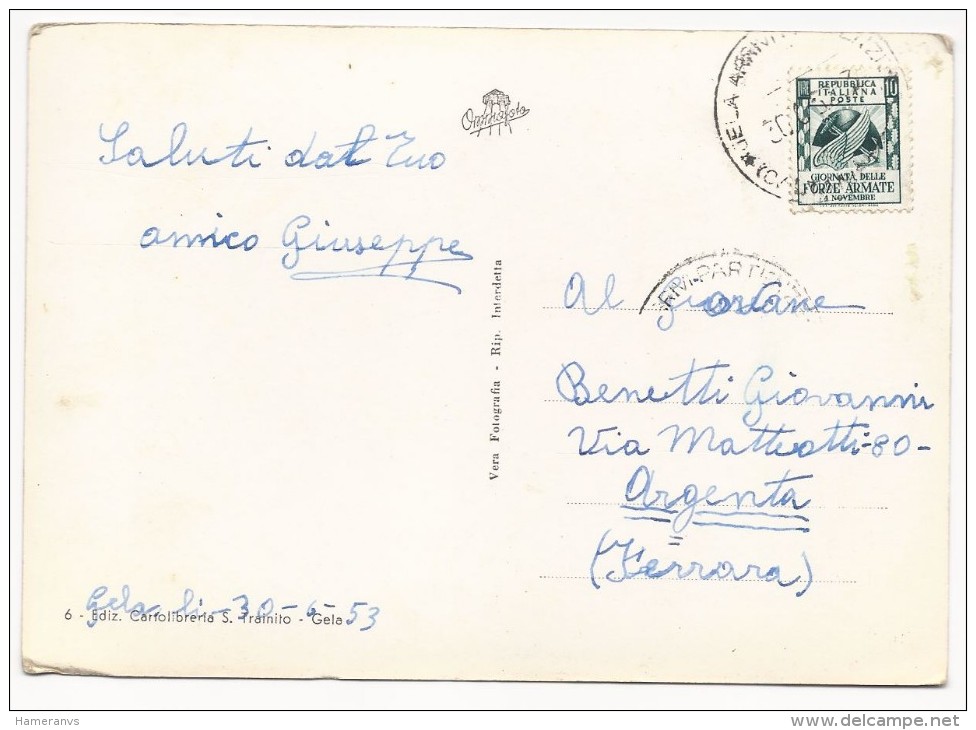 Saluti dal Tuo
amico Giuseppe
Vera Fotografia - Rip. Interdetta
REPUBBLICA
ITALIANA
POSTE
10
GIORNATA DELLE
FORZE ARMATE
4 NOVEMBRE
GELA ARRIVI
30
RRIVI-PARTENZE
Al
Benetti Giovanni
Via Matteotti-80-
Argenta
(Ferrara)
Gela li-30-6-53
6 - Ediz. Cartolibreria S. Trainito - Gela
Hameranvs
www.delcampe.net